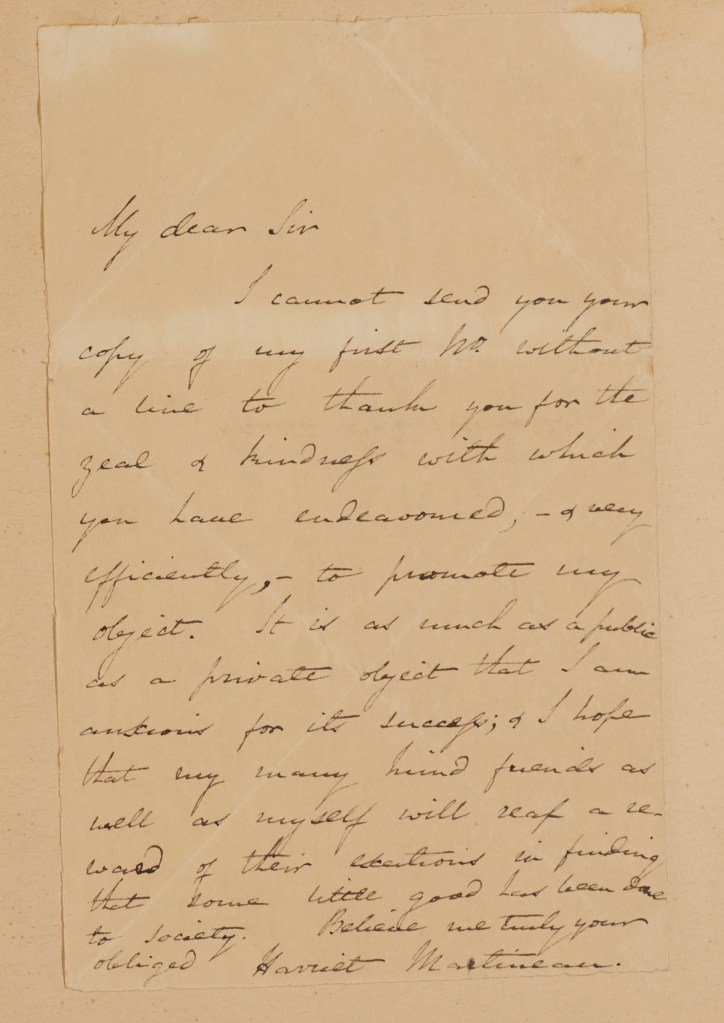 My dear Sir
I cannot send you your
copy of my first No. without
a line to thank you for the
zeal & kindness with which
you have endeavoured, – & very
efficiently, – to promote my
object. It is as much as a public
as a private object that I am
anxious for its success; & I hope
that my many kind friends as
well as myself will reap a re-
ward of their exertions in finding
that some little good has been done
to society. Believe me truly your
obliged Harriet Martineau.